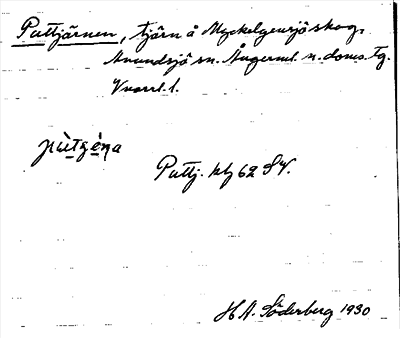 Puttjärnen, tjärn å Myckelgensjö skog,
Anundsjö sn. Ångerml. n. doms. tg.
Vrarrl. l.
pùtʒèna
Puttj. kbl 62 SV.
H A. Söderberg 1930